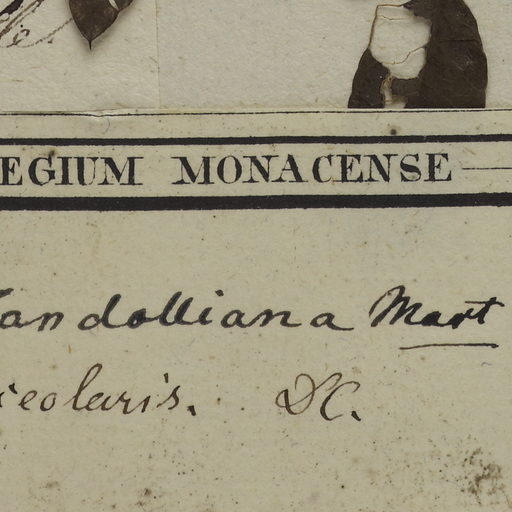 EGIUM MONACENSE
andolliana Mart
ceolaris. DC.